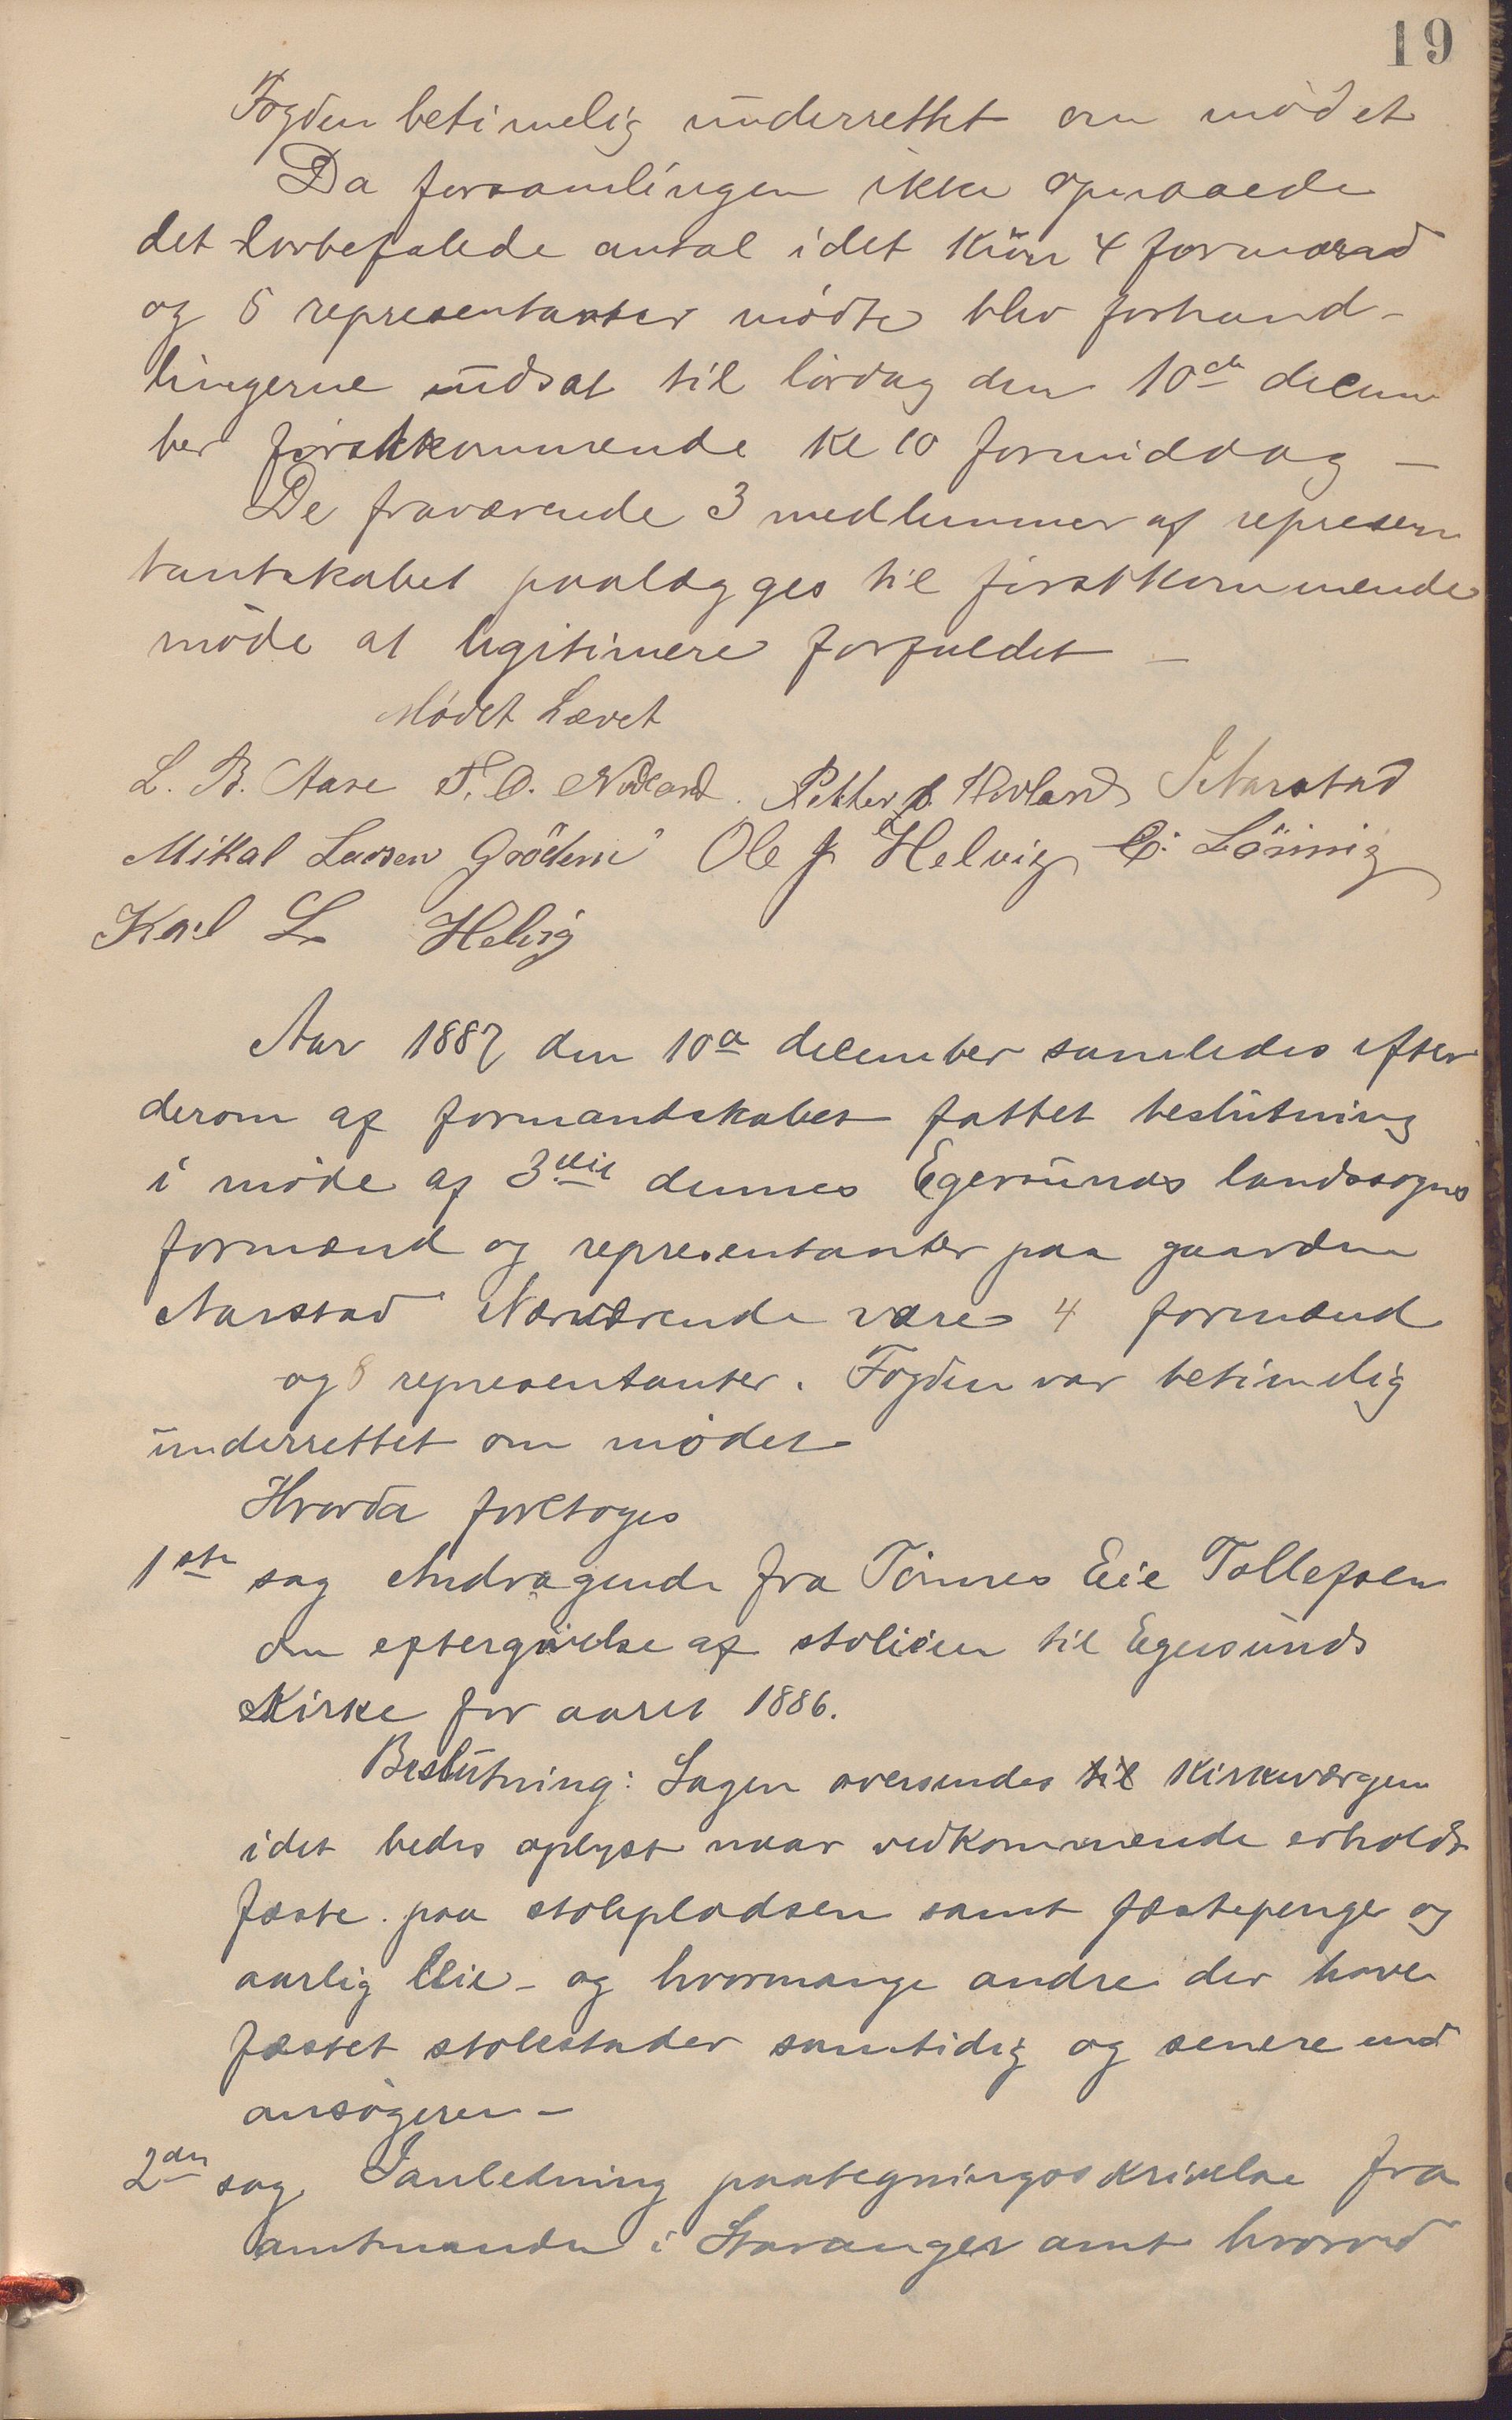 19
Fogden betimelig underrettet om mødet
Da forsamlingen ikke opnaaede
det lovbefalede antal idet kun 4 formænd
og 5 representanter mødte blev forhand-
lingerne udsat til lørdag den 10de decem
ber førstkommende kl 10 formiddag –
De fraværende 3 medlemmer af represen
tantskabet paalægges til førstkommende
møde at legitimere forfaldet –
Mødet hævet
L. B. Aase T. O. Nodland. Petter Hovland Aarstad
Mikal Larsen Grødem Ole J Helvig Lønnig
Karl L Helvig
Aar 1887 den 10de december samledes efter
derom af formandskabet fattet beslutning
i møde af 3die dennes Egersunds landssogns
formænd og representanter paa gaarden
Aarstad Nærværende vare 4 formænd
og 8 representanter. Fogden var betimelig
underrettet om mødet
Hvorda foretoges
1ste sag Andragende fra Tønnes Eie Tollefsen
om eftergivelse af stoleien til Egersunds
Kirke for aaret 1886.
Beslutning: Sagen oversendes til Kirkeværgen
idet bedes oplyst naar vedkommende erholdt
fæste paa stolepladsen samt fæstepenge og
aarlig leie – og hvormange andre der have
fæstet stolestader samtidig og senere end
ansøgeren –
2den sag Ianledning paategningsskrivelse fra
amtmanden i Stavanger amt hvorved